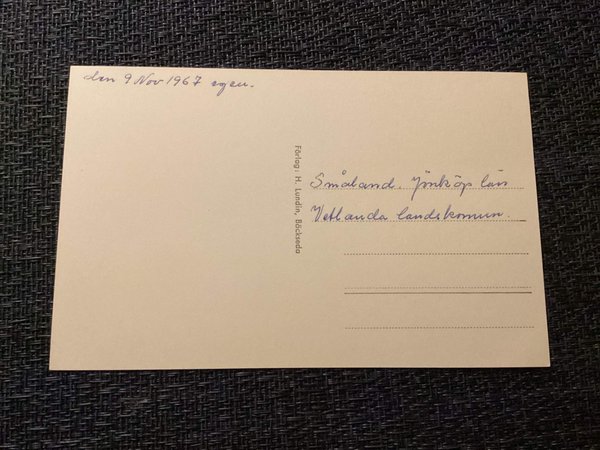 den 9 Nov 1967 egen.
Förlag: H. Lundin, Bäckseda
Småland. Jönköp län
Vetlanda landskomun.